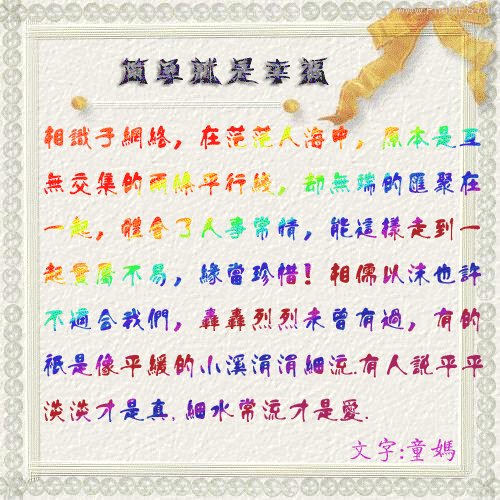 簡單就是幸福
相識于網絡，在茫茫人海中，原本是互
無交集的兩條平行綫，却無端的匯聚在
一起，體會了人事常情，能這樣走到一
起實屬不易，緣當珍惜！相儒以沫也許
不適合我們，轟轟烈烈未曾有過，有的
祇是像平緩的小溪涓涓細流.有人說平平
淡淡才是真.細水常流才是愛.
文字:童媽